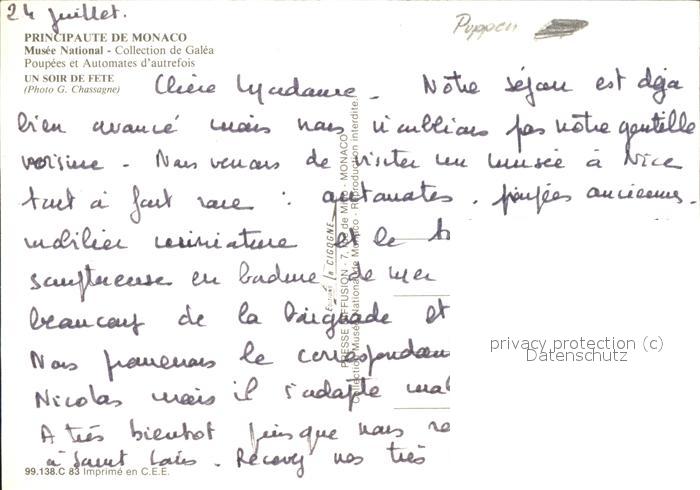 24 juillet.
Puppen
PRINCIPAUTE DE MONACO
Musée National - Collection de Galéa
Poupées et Automates d'autrefois
UN SOIR DE FETE
(Photo G. Chassagne)
Chère Madame - Notre séjour est déja
bien avancé mais nous n'oublions pas notre gentille
voisine - Nous venons de visiter un musée à Nice
tout à fait rare : automates, poupées anciennes.
mobilier miniature et le
somptueuse en bordure de mer
beaucoup de la et
Nous le
Nicolas mais il s'adapte
A très bientot puisque nous
à Saint Louis. Recevez nos très
PRESSE DIFFUSION - 7, de - MONACO
Collection Musée National de Monaco - Reproduction interdite.
LA CIGOGNE
privacy protection (c)
Datenschutz
99.138.C 83 Imprimé en C.E.E.